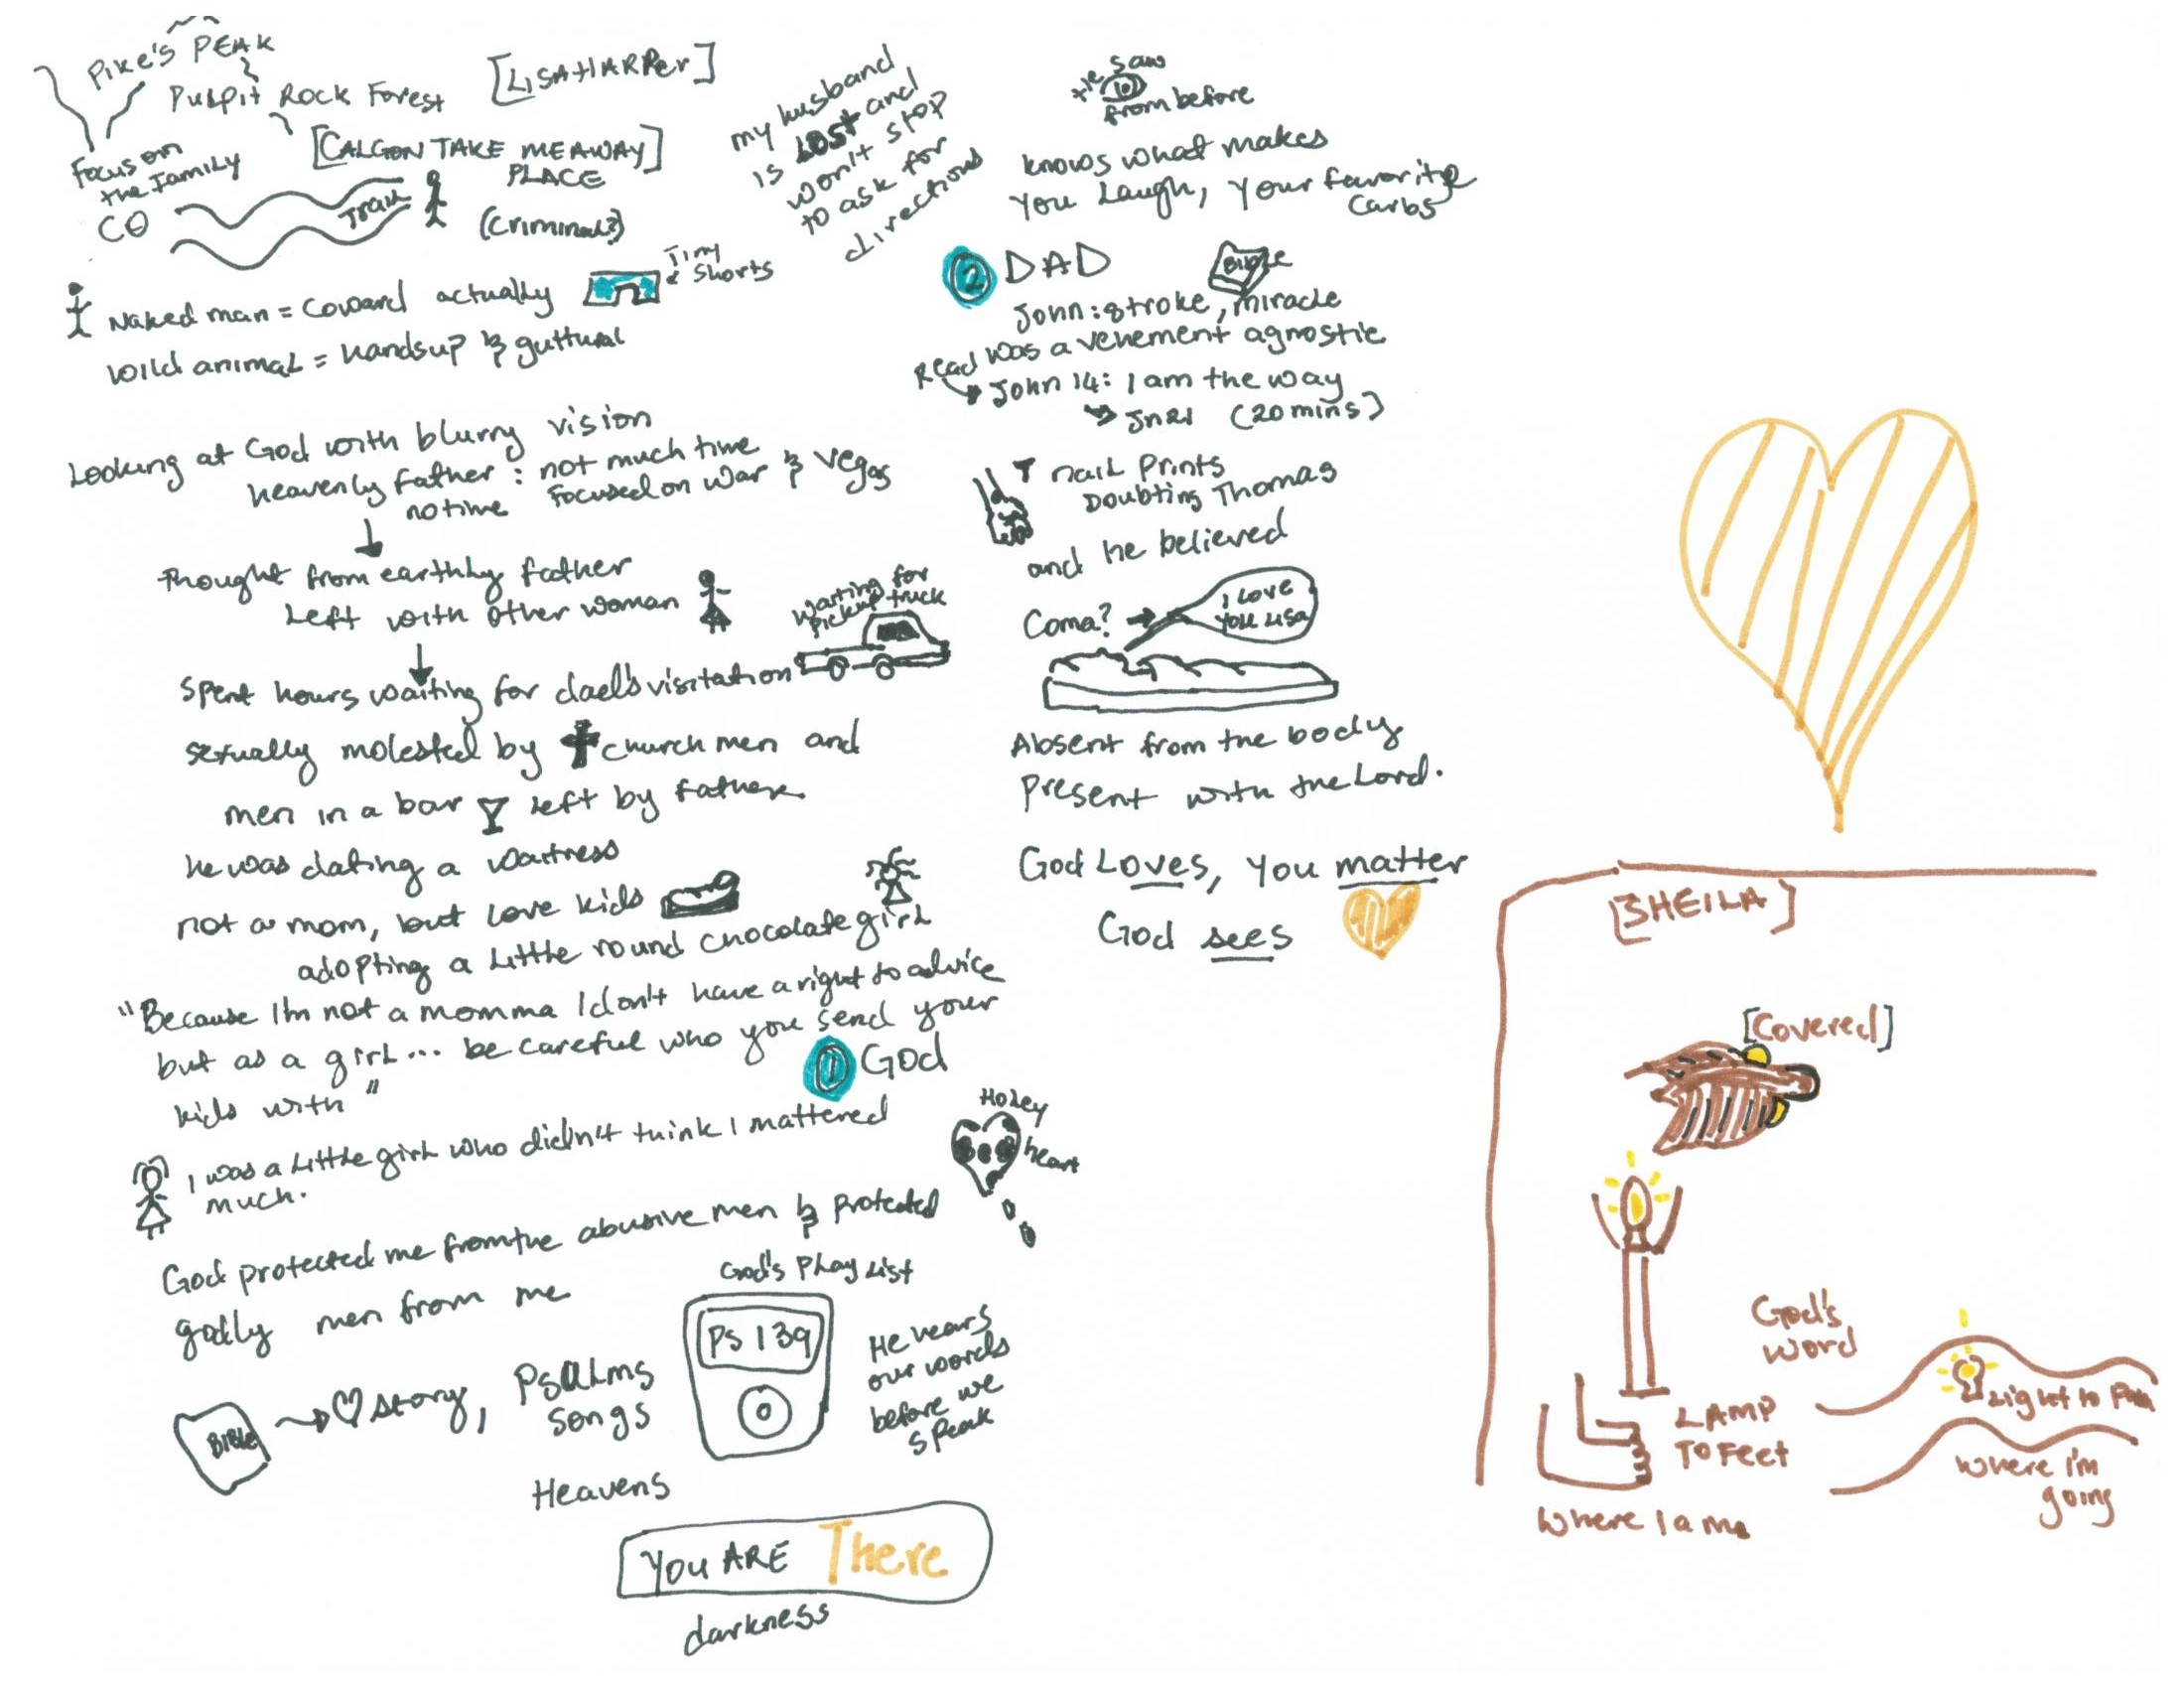 Pike's PEAK
Pulpit Rock Forest
[LISA HARPER]
Focus on
the Family
CO
[CALGON TAKE ME AWAY]
PLACE
Trail
(Criminal?)
Tiny
Shorts
Naked man = Coward actually
Wild animal = hands up & guttural
Looking at God with blurry vision
heavenly father : not much time
no time focused on war & Vegas
Thought from earthly father
Left with other woman
Waiting for
pickup truck
Spent hours waiting for dad's visitation
sexually molested by church men and
men in a bar left by father
he was dating a waitress
not a mom, but love kids
adopting a little round chocolate girl
"Because I'm not a momma I don't have a right to advice
but as a girl... be careful who you send your
kids with"
1 God
I was a little girl who didn't think I mattered
much.
Holey
heart
God protected me from the abusive men & protected
godly men from me
BIBLE
story, Psalms
Songs
God's Play List
PS 139
He hears
our words
before we
speak
Heavens
YOU ARE There
darkness
my husband
is LOST and
won't stop
to ask for
directions
He saw
from before
knows what makes
you laugh, your favorite
carbs
2 DAD
BIBLE
John: stroke, miracle
was a vehement agnostic
Read
John 14: I am the way
Jn21 (20 mins)
nail prints
Doubting Thomas
and he believed
Coma?
I Love
you Lisa
Absent from the body
Present with the Lord.
God Loves, you matter
God sees
[SHEILA]
[Covered]
God's
word
LAMP
TO FEET
Where I am
Light to Path
Where I'm
going